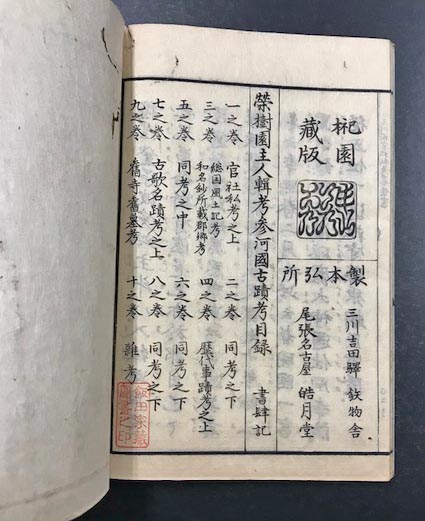 園
藏版
製本弘所
三川吉田驛 物舎
尾張名古屋 皓月堂
榮樹園主人輯考参河國古蹟考目録 書肆記
一之巻 官社私考之上 二之巻 同考之下
三之巻 総国風土記考 和名鈔所載郡郷考 四之巻 歴代事蹟考之上
五之巻 同考之中 六之巻 同考之下
七之巻 古歌名蹟考之上 八之巻 同考之下
九之巻 舊寺舊墓考 十之巻 雜考
飯田家藏
圖書之印